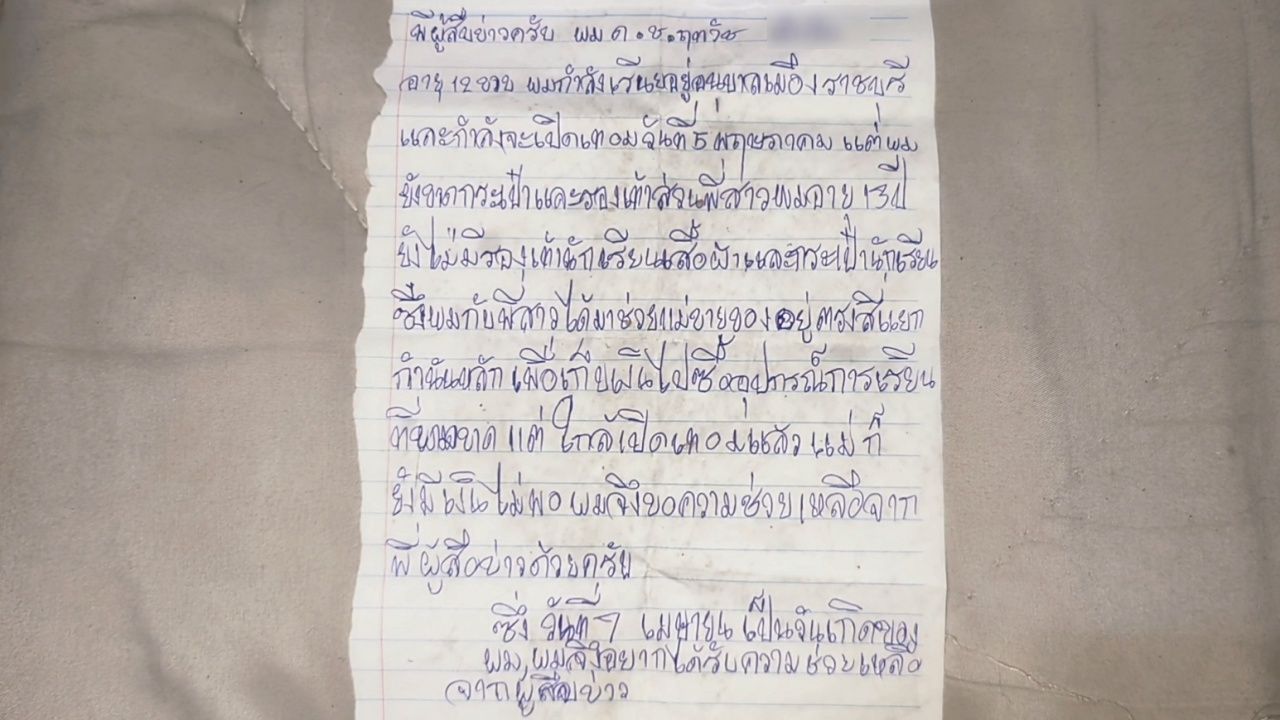 พี่ผู้สื่อข่าวครับ ผม ด.ช.ฤทวัช
อายุ 12 ขวบ ผมกำลังเรียนอยู่อนุบาลเมืองราชบุรี
และกำลังจะเปิดเทอมวันที่ 5 พฤษภาคม แต่ผม
ยังขาดกระเป๋าและรองเท้าส่วนพี่สาวผมอายุ 13 ปี
ยังไม่มีรองเท้านักเรียนเสื้อผ้าและกระเป๋านักเรียน
ซึ่งผมกับพี่สาวได้มาช่วยแม่ขายของอยู่ตรงสี่แยก
กำนันหลักเพื่อเก็บเงินไปซื้ออุปกรณ์การเรียน
ที่ขาด แต่ใกล้เปิดเทอมแล้วแม่ก็
ยังมีเงินไม่พอ ผมจึงขอความช่วยเหลือจาก
พี่ผู้สื่อข่าวด้วยครับ
ซึ่งวันที่ 7 เมษายน เป็นวันเกิดของ
ผม,ผมจึงอยากได้รับความช่วยเหลือ
จากผู้สื่อข่าว